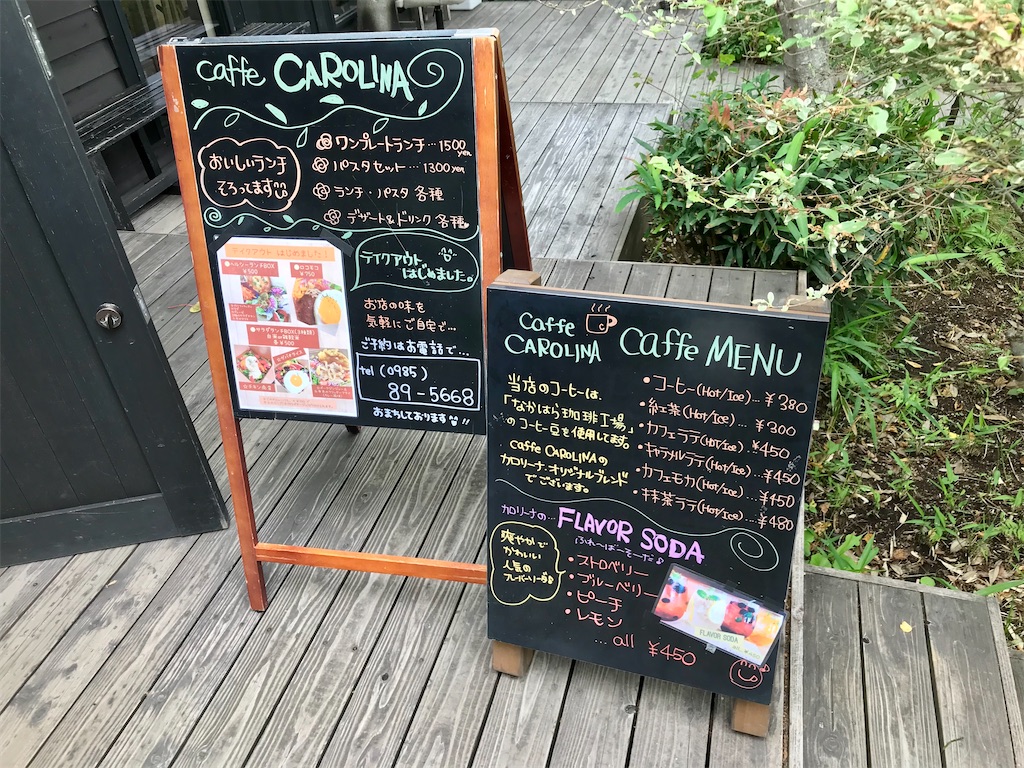 caffe CAROLINA
おいしいランチ
そろってます
ワンプレートランチ…1500yen
パスタセット…1300yen
ランチ・パスタ 各種
デザート&ドリンク 各種
テイクアウト
はじめました。
テイクアウト はじめました!
¥500
●ロコモコ
¥750
お店の味を
気軽にご自宅で…
ご予約はお電話で…
tel (0985)
89-5668
おまちしております!!
Caffe
CAROLINA
Caffe MENU
当店のコーヒーは、
「なかはら珈琲工場」
のコーヒー豆を使用してます。
Caffe CAROLINAの
カロリーナ・オリジナルブレンド
でございます。
•コーヒー(Hot/Ice)…¥380
•紅茶(Hot/Ice)…¥300
•カフェラテ(Hot/Ice)…¥450
•キャラメルラテ(Hot/Ice)…¥450
•カフェモカ(Hot/Ice)…¥450
•抹茶ラテ(Hot/Ice)…¥480
カロリーナの…FLAVOR SODA
ふれーばーそーだ♪
爽やかで
かわいい
人気の
•ストロベリー
•ブルーベリー
•ピーチ
•レモン
…all ¥450
FLAVOR SODA